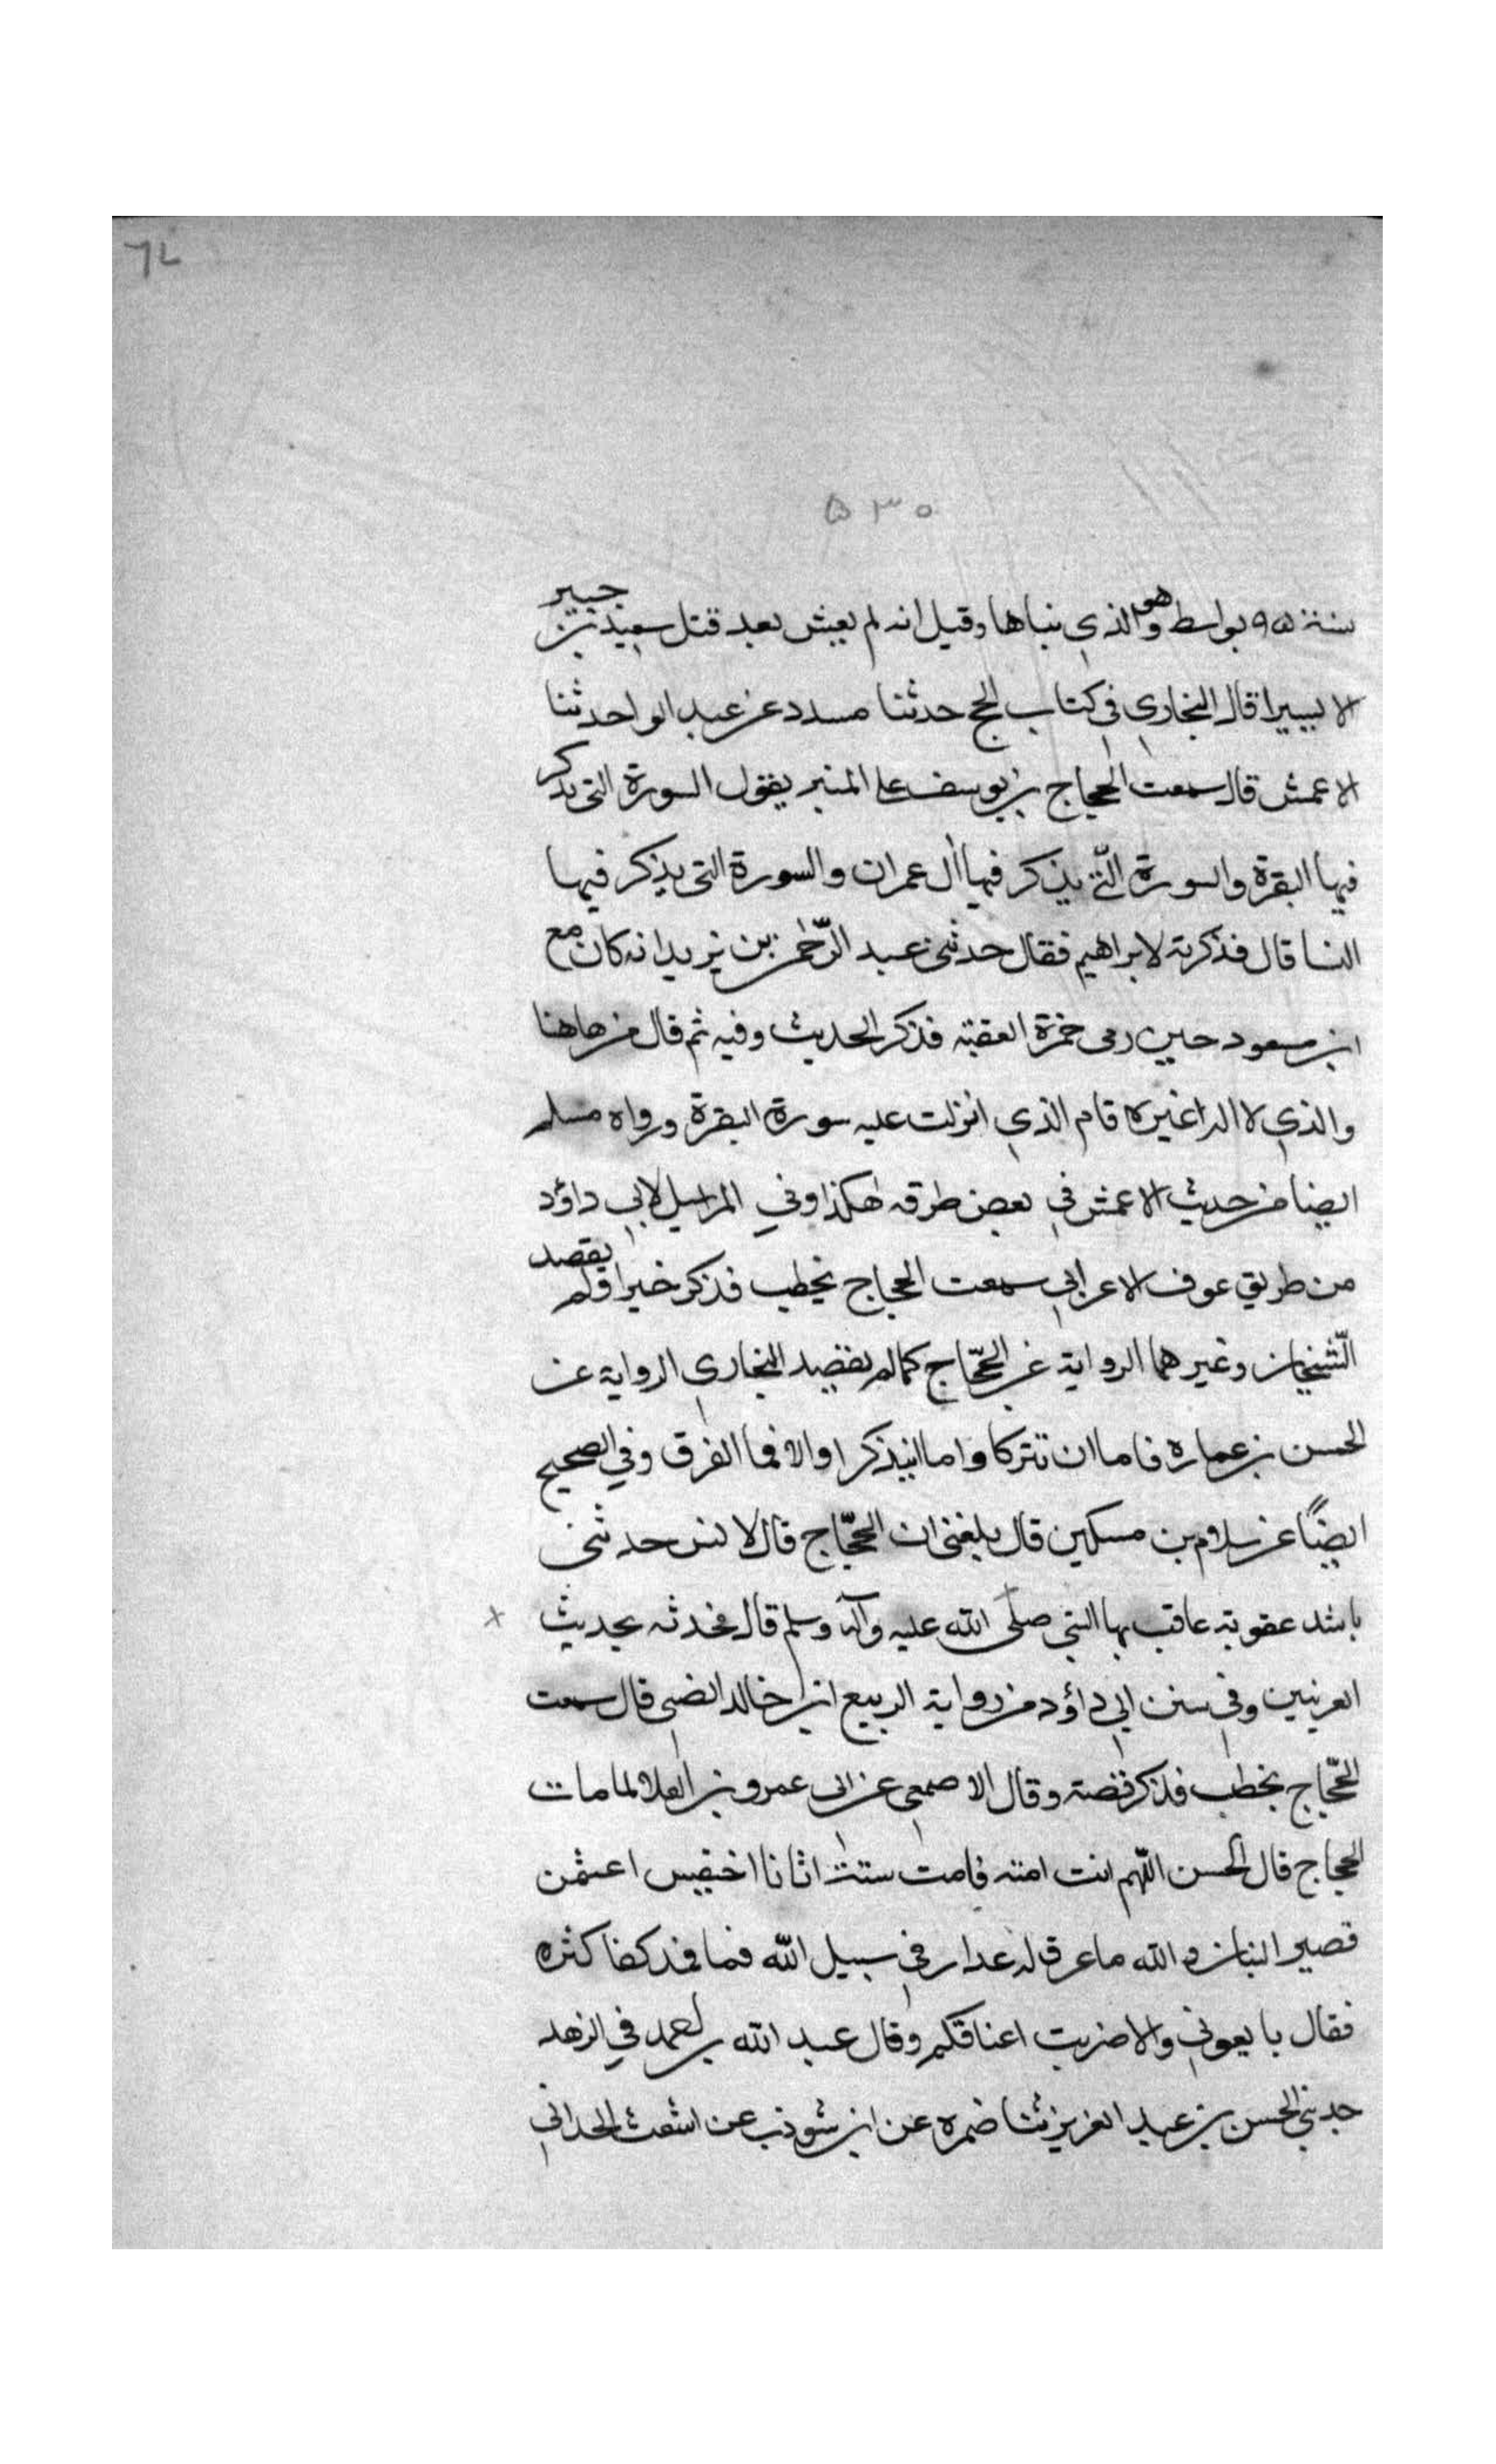 ٦٧
٥٣٠
سنة ٩٥ بواسط وهو الذي بناها وقيل انه لم يعيش بعد قتل سعيد بن جبير
الا يسيرا قال البخاري في كتاب الحج حدثنا مسدد عن عبد الواحد ثنا
الاعمش قال سمعت الحجاج بن يوسف على المنبر يقول السورة التي يذكر
فيها البقرة والسورة الّتي يذكر فيها ال عمران والسورة التي يذكر فيها
النسا قال فذكرته لابراهيم فقال حدثني عبد الرّحمن بن يزيد انه كان مع
ابن مسعود حين رمى جمرة العقبة فذكر الحديث وفيه ثم قال من هاهنا
والذي لا اله غيره قام الذي انزلت عليه سورة البقرة ورواه مسلم
ايضا من حديث الاعمش في بعض طرقه هكذا وفي المراسيل لابي داؤد
من طريق عوف الاعرابي سمعت الحجاج يخطب فذكر خبرا فلم يقصد
الشّيخان وغيرهما الرواية عن الحجّاج كما لم يقصد البخاري الرواية عن
الحسن بن عماره فاما ان تتركا واما ان يذكرا والا فما الفرق وفي الصحيح
ايضًا عن سلام بن مسكين قال بلغني ان الحجّاج قال لانس حدثني
باشد عقوبة عاقب بها النبي صلى الله عليه وآله وسلم قال فحدثه بحديث
العرنيين وفي سنن ابي داؤد من رواية الربيع ابن خالد الضبي قال سمعت
الحجّاج يخطب فذكر قصة وقال الاصمعي عن ابي عمرو بن العلا لما مات
الحجاج قال الحسن اللّهم انت امته فامت سنته اتانا اخيفيس اعيمش
قصير البنان والله ما عرق له عدار في سبيل الله فما فمد كفا كثره
فقال بايعوني والا ضربت اعناقكم وقال عبد الله بن احمد في الزهد
حدثني الحسن بن عبد العزيز ثنا ضمره عن ابن شوذب عن اشعث الحداني